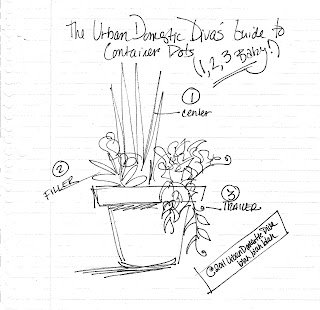 The Urban Domestic Diva's Guide to
Container Pots
(1, 2, 3 Baby!)
1
center
2
FILLER
3
TRAILER
©2011 Urban Domestic Diva
blah blah blah